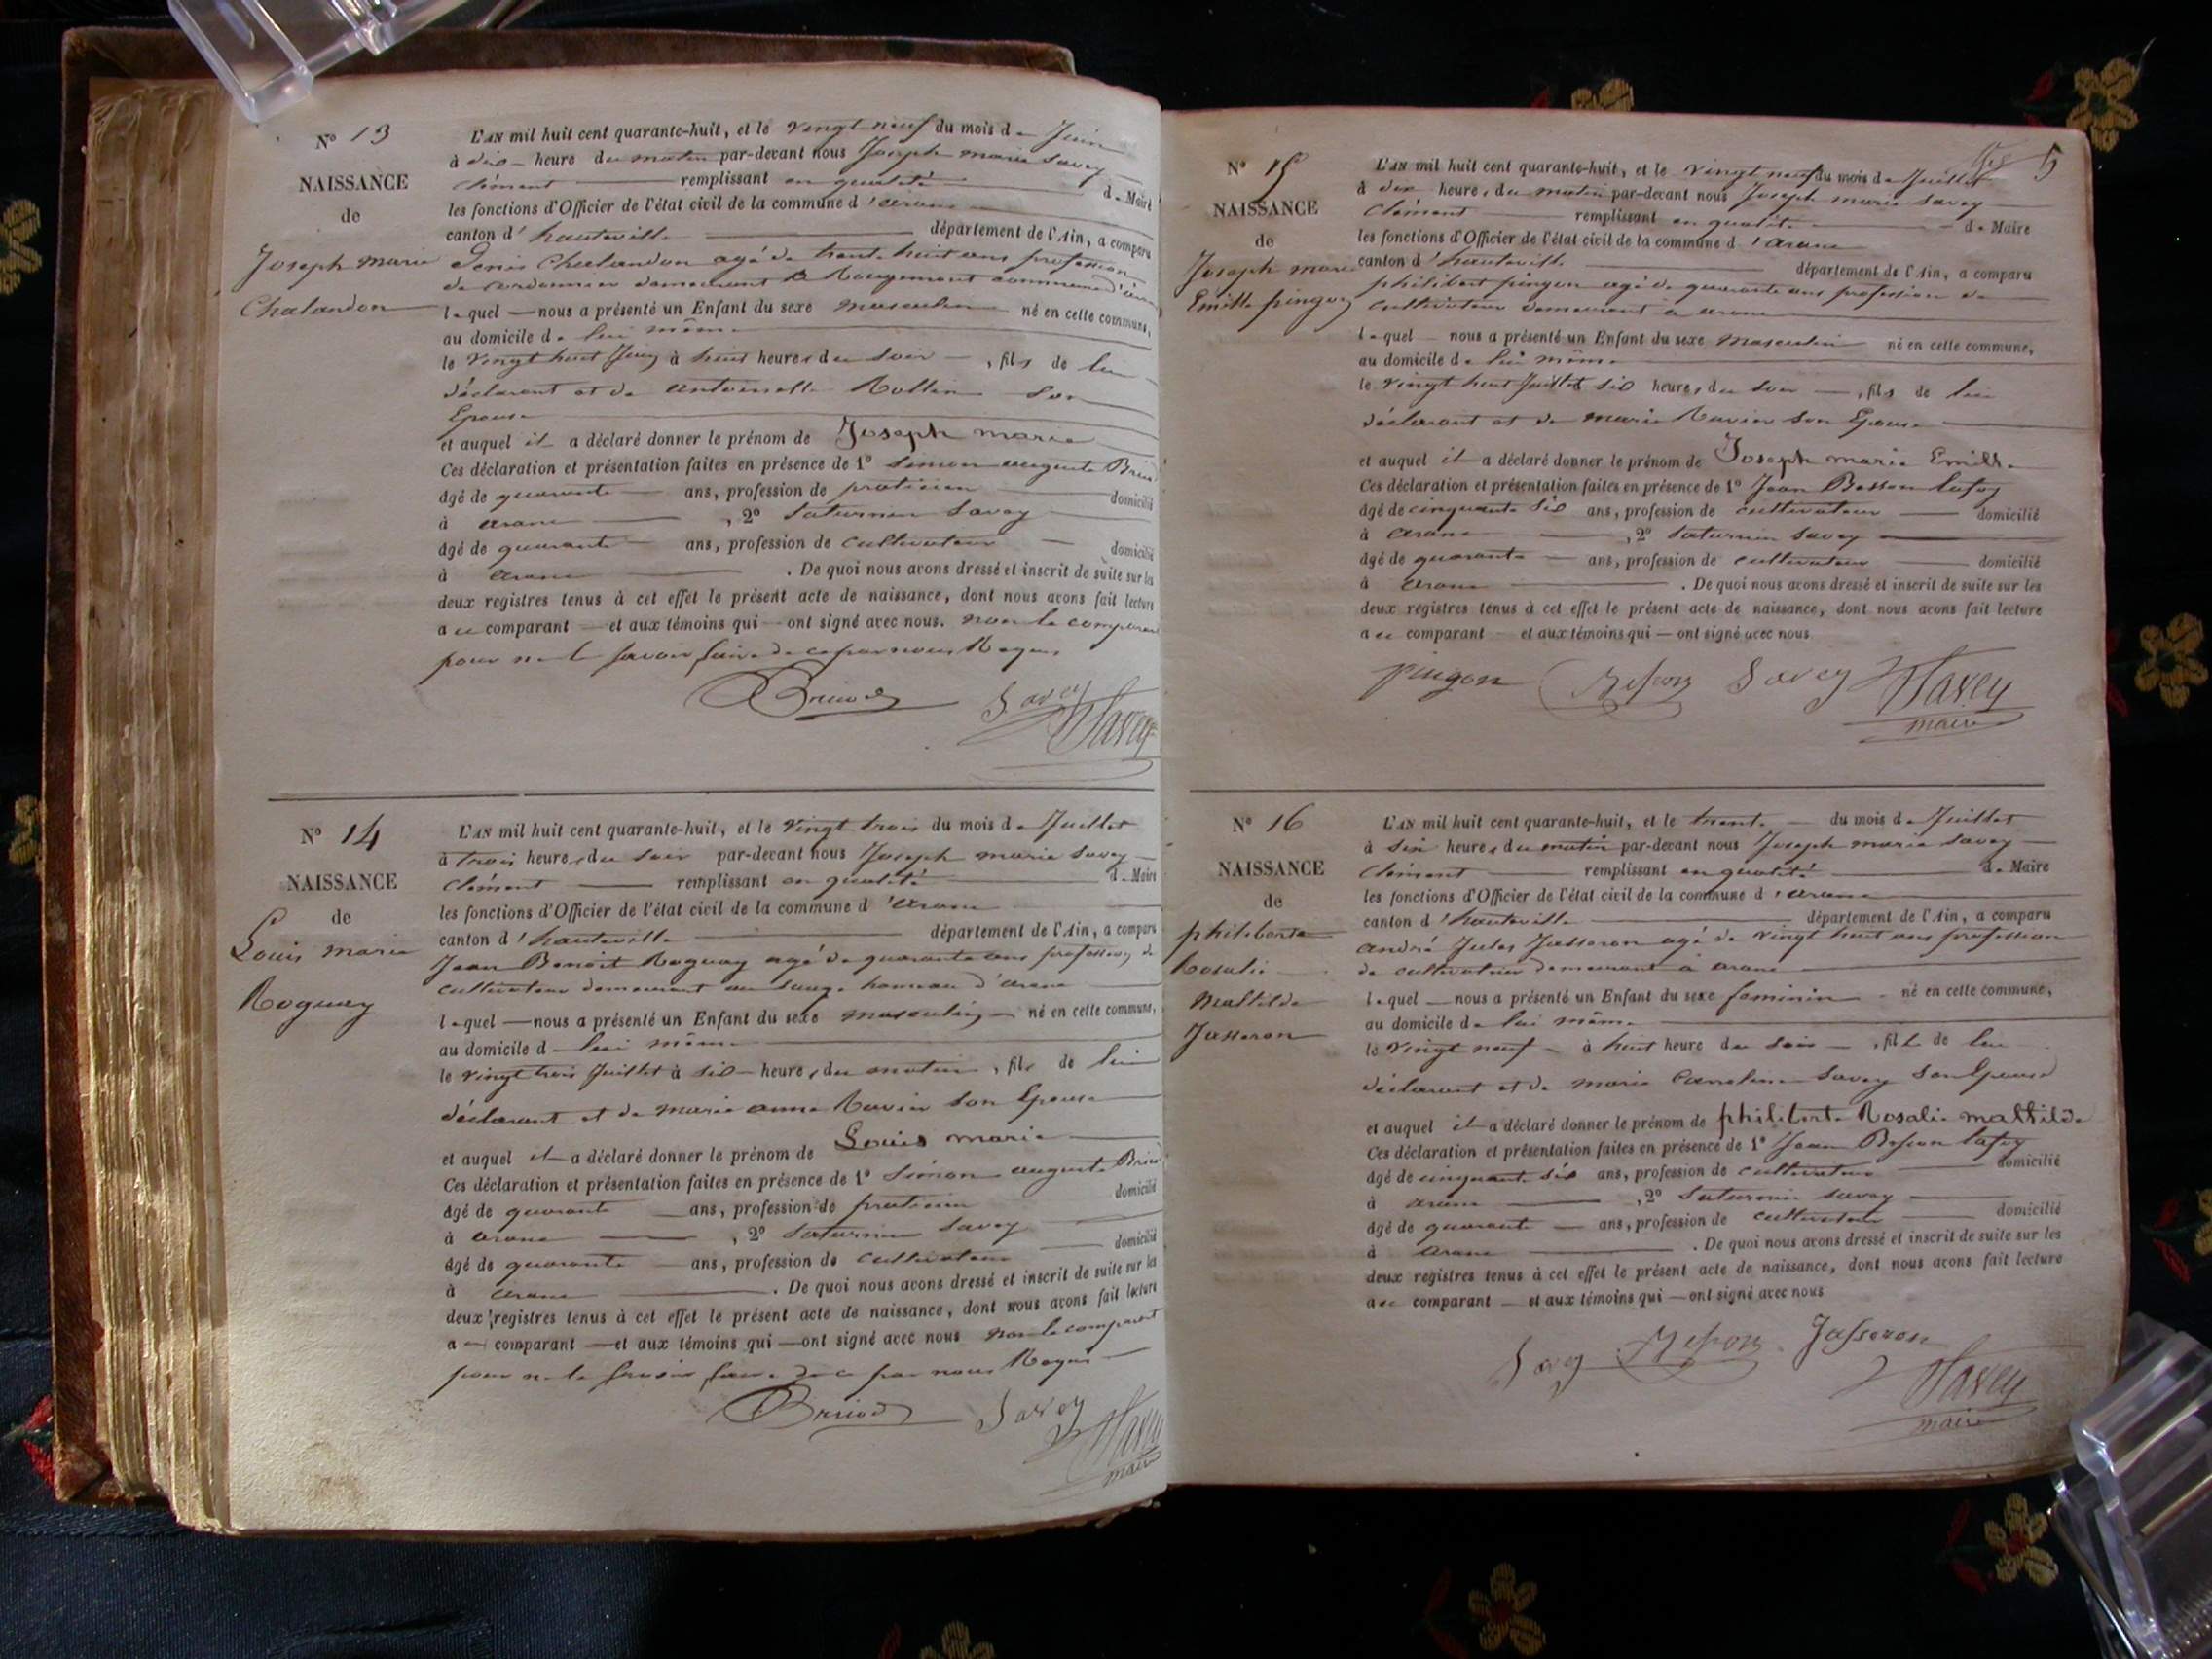 N° 13
NAISSANCE
de
Joseph marie
Chalandon
L'AN mil huit cent quarante-huit, et le vingt neuf du mois de Juin
à dix heure du matin par-devant nous Joseph marie Savey
Clément remplissant en qualité de Maire
les fonctions d'Officier de l'état civil de la commune d'arane
canton d'hauteville département de l'Ain, a comparu
Denis Chalandon agé de trente huit ans profession
de cordonnier demeurant à Rougemont commune d'arane
lequel nous a présenté un Enfant du sexe masculin né en cette commune,
au domicile de lui même
le vingt huit Juin à huit heures du soir, fils de lui
déclarant et de antoinette Rollin son
Epouse
et auquel il a déclaré donner le prénom de Joseph marie
Ces déclaration et présentation faites en présence de 1° Simon auguste
âgé de quarante ans, profession de praticien domicilié
à arane, 2° Saturnin Savey
âgé de quarante ans, profession de cultivateur domicilié
à arane. De quoi nous avons dressé et inscrit de suite sur les
deux registres tenus à cet effet le présent acte de naissance, dont nous avons fait lecture
au comparant et aux témoins qui ont signé avec nous. non le comparant
pour ne le savoir faire de ce par nous Requis
Savey
Savey
N° 14
NAISSANCE
de
Louis marie
Roguay
L'AN mil huit cent quarante-huit, et le vingt trois du mois de Juillet
à trois heures du soir par-devant nous Joseph marie Savey
Clément remplissant en qualité de Maire
les fonctions d'Officier de l'état civil de la commune d'arane
canton d'hauteville département de l'Ain, a comparu
Jean Benoit Roguay agé de quarante ans profession de
cultivateur demeurant au hameau d'arane
lequel nous a présenté un Enfant du sexe masculin né en cette commune,
au domicile de lui même
le vingt trois Juillet à six heures du matin, fils de lui
déclarant et de marie anne Ravier son Epouse
et auquel il a déclaré donner le prénom de Louis marie
Ces déclaration et présentation faites en présence de 1° Simon auguste
âgé de quarante ans, profession de praticien domicilié
à arane, 2° Saturnin Savey
âgé de quarante ans, profession de cultivateur domicilié
à arane. De quoi nous avons dressé et inscrit de suite sur les
deux registres tenus à cet effet le présent acte de naissance, dont nous avons fait lecture
au comparant et aux témoins qui ont signé avec nous non le comparant
pour ne le savoir faire de ce par nous Requis
Savey
Savey
maire
5
N° 15
NAISSANCE
de
Joseph marie
Emille pingon
L'AN mil huit cent quarante-huit, et le vingt neuf du mois de Juillet
à dix heures du matin par-devant nous Joseph marie Savey
Clément remplissant en qualité de Maire
les fonctions d'Officier de l'état civil de la commune d'arane
canton d'hauteville département de l'Ain, a comparu
philibert pingon agé de quarante ans profession de
cultivateur demeurant à arane
lequel nous a présenté un Enfant du sexe masculin né en cette commune,
au domicile de lui même
le vingt huit Juillet six heures du soir, fils de lui
déclarant et de marie Ravier son Epouse
et auquel il a déclaré donner le prénom de Joseph marie Emille
Ces déclaration et présentation faites en présence de 1° Jean Besson
âgé de cinquante six ans, profession de cultivateur domicilié
à arane, 2° Saturnin Savey
âgé de quarante ans, profession de cultivateur domicilié
à arane. De quoi nous avons dressé et inscrit de suite sur les
deux registres tenus à cet effet le présent acte de naissance, dont nous avons fait lecture
au comparant et aux témoins qui ont signé avec nous
pingon Besson Savey Savey
maire
N° 16
NAISSANCE
de
philiberte
Rosalie
Mathilde
Jasseron
L'AN mil huit cent quarante-huit, et le trente du mois de Juillet
à six heures du matin par-devant nous Joseph marie Savey
Clément remplissant en qualité de Maire
les fonctions d'Officier de l'état civil de la commune d'arane
canton d'hauteville département de l'Ain, a comparu
André Jules Jasseron agé de vingt huit ans profession
de cultivateur demeurant à arane
lequel nous a présenté un Enfant du sexe feminin né en cette commune,
au domicile de lui même
le vingt neuf à huit heure du soir, fille de lui
déclarant et de marie Caroline Savey Son Epouse
et auquel il a déclaré donner le prénom de philiberte Rosalie mathilde
Ces déclaration et présentation faites en présence de 1° Jean Besson
âgé de cinquante six ans, profession de cultivateur domicilié
à arane, 2° Saturnin Savey
âgé de quarante ans, profession de cultivateur domicilié
à arane. De quoi nous avons dressé et inscrit de suite sur les
deux registres tenus à cet effet le présent acte de naissance, dont nous avons fait lecture
au comparant et aux témoins qui ont signé avec nous
Savey Besson Jasseron
Savey
maire